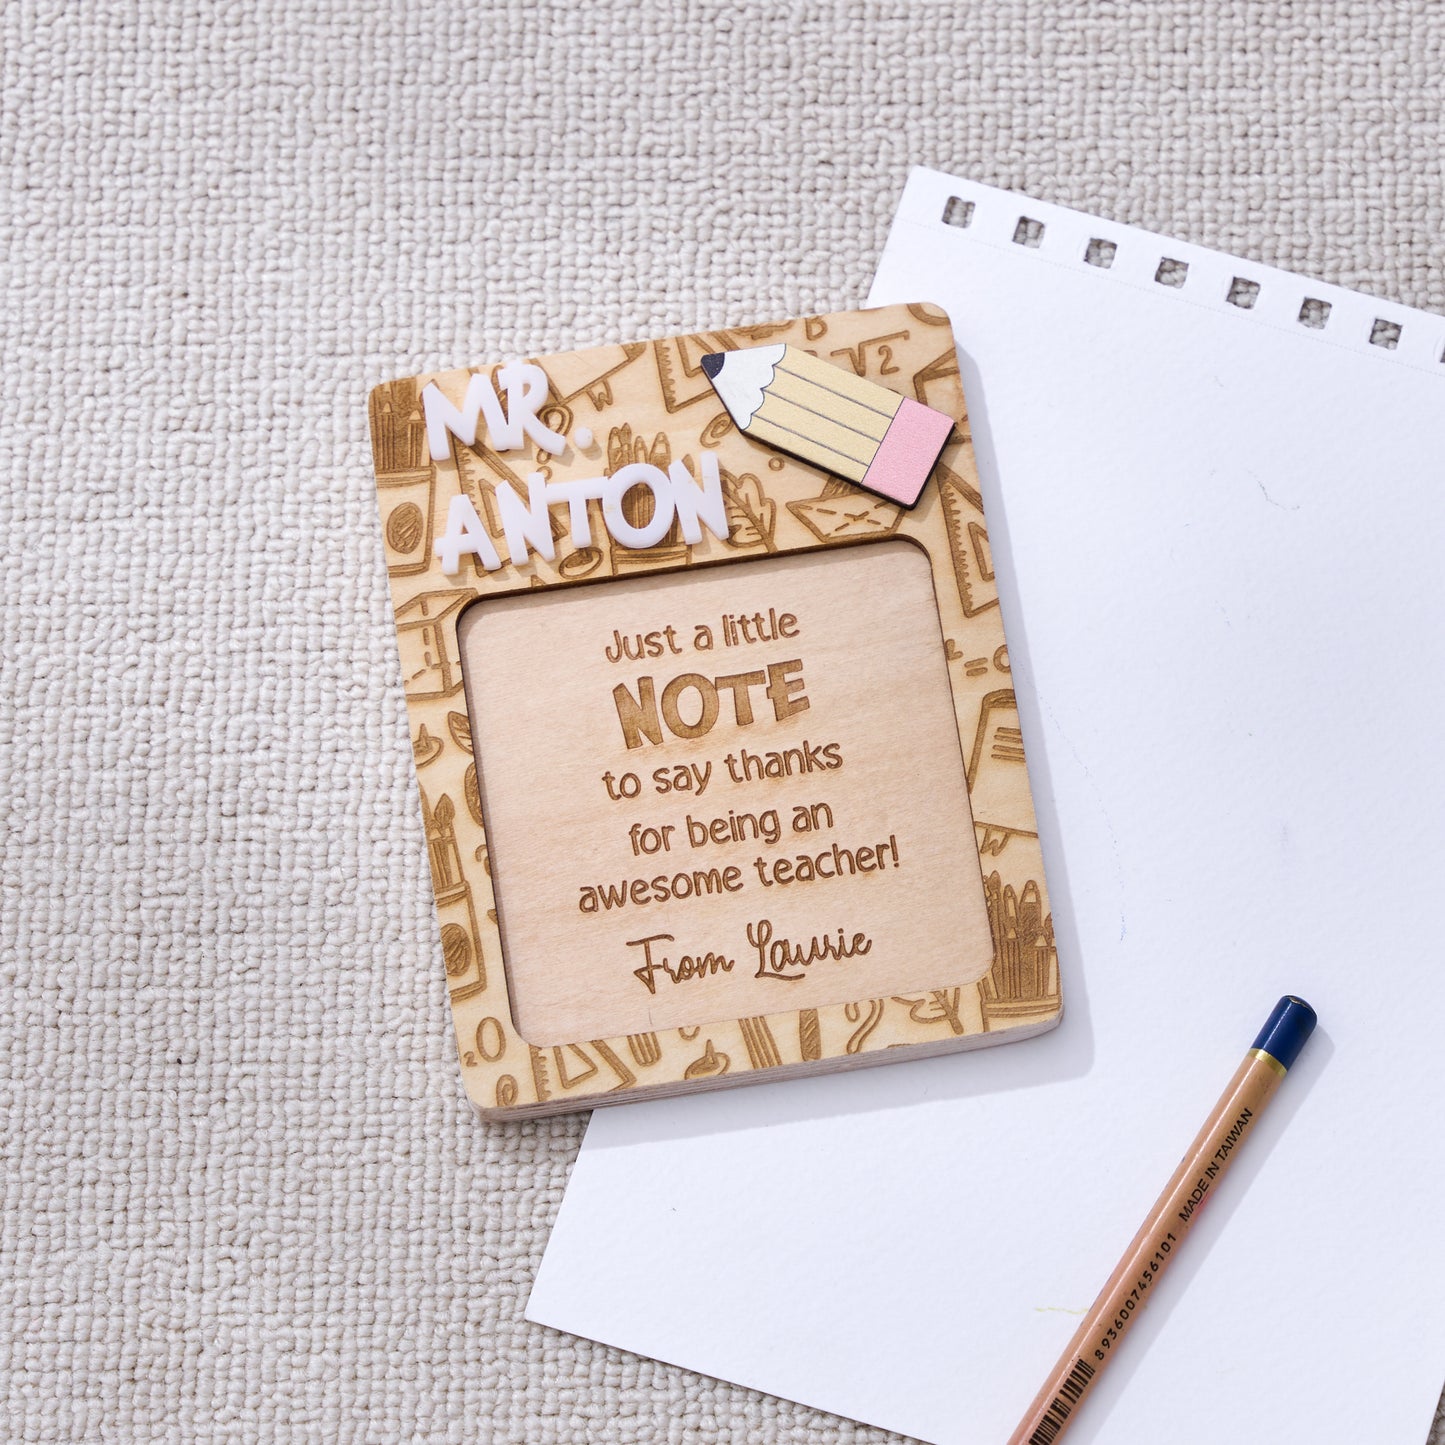 MR.
ANTON
Just a little
NOTE
to say thanks
for being an
awesome teacher!
From Laurie
8936007456101 MADE IN TAIWAN